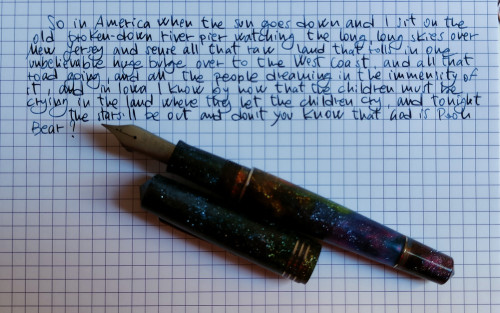 So in America when the sun goes down and I sit on the
old broken-down river pier watching the long, long skies over
New Jersey and sense all that raw land that rolls in one
unbelievable huge bulge over to the West Coast, and all that
road going, and all the people dreaming in the immensity of
it, and in Iowa I know by now that the children must be
crying in the land where they let the children cry, and tonight
the stars'll be out and don't you know that God is Pooh
Bear?